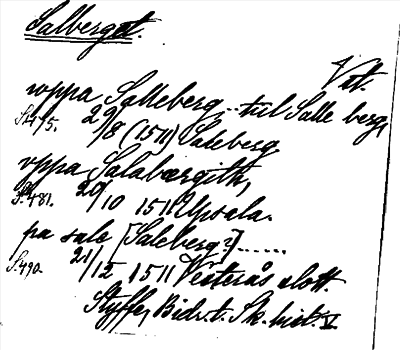 Salberget.
Vst.
uppa Salleberg... till Salle berg,
S. 475. 29/8 (1511) Saleberg
uppa Salabergith,
S. 481. 20/10 1511 Upsala.
pa sale [Saleberg?]......
S. 490. 21/12 1511 Vesterås slott.
Styffe, Bidr. t. Sk. hist. V